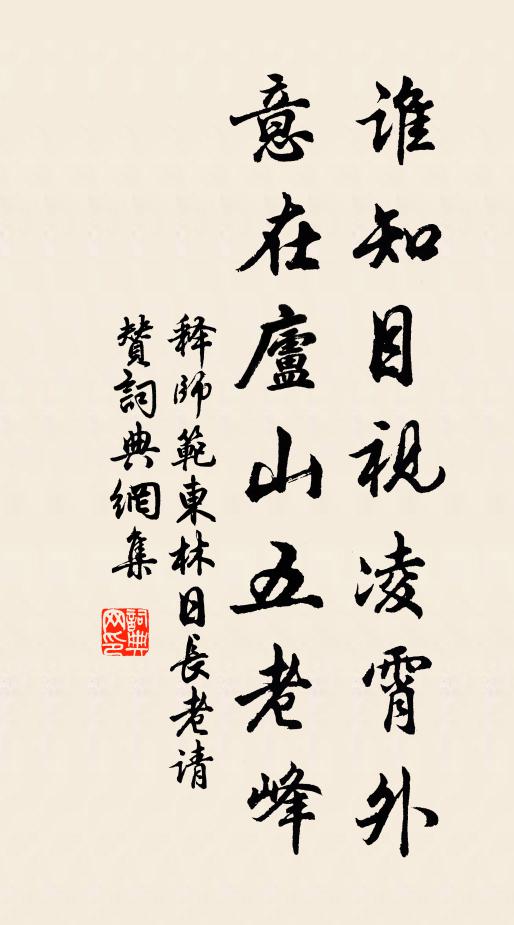 誰知目視凌霄外
意在廬山五老峰
释師範東林日長老请
贊詞典網集
詞典網印